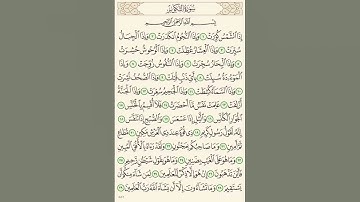 سُورَةُ التَّكْوِيرِ
بِسْمِ اللَّهِ الرَّحْمَٰنِ الرَّحِيمِ
إِذَا الشَّمْسُ كُوِّرَتْ ١ وَإِذَا النُّجُومُ انكَدَرَتْ ٢ وَإِذَا الْجِبَالُ
سُيِّرَتْ ٣ وَإِذَا الْعِشَارُ عُطِّلَتْ ٤ وَإِذَا الْوُحُوشُ حُشِرَتْ
٥ وَإِذَا الْبِحَارُ سُجِّرَتْ ٦ وَإِذَا النُّفُوسُ زُوِّجَتْ ٧ وَإِذَا
الْمَوْءُودَةُ سُئِلَتْ ٨ بِأَيِّ ذَنبٍ قُتِلَتْ ٩ وَإِذَا الصُّحُفُ نُشِرَتْ
١٠ وَإِذَا السَّمَاءُ كُشِطَتْ ١١ وَإِذَا الْجَحِيمُ سُعِّرَتْ ١٢ وَإِذَا الْجَنَّةُ
أُزْلِفَتْ ١٣ عَلِمَتْ نَفْسٌ مَّا أَحْضَرَتْ ١٤ فَلَا أُقْسِمُ بِالْخُنَّسِ ١٥
الْجَوَارِ الْكُنَّسِ ١٦ وَاللَّيْلِ إِذَا عَسْعَسَ ١٧ وَالصُّبْحِ إِذَا تَنَفَّسَ ١٨
إِنَّهُ لَقَوْلُ رَسُولٍ كَرِيمٍ ١٩ ذِي قُوَّةٍ عِندَ ذِي الْعَرْشِ مَكِينٍ ٢٠ مُّطَاعٍ
ثَمَّ أَمِينٍ ٢١ وَمَا صَاحِبُكُم بِمَجْنُونٍ ٢٢ وَلَقَدْ رَءَاهُ بِالْأُفُقِ الْمُبِينِ
٢٣ وَمَا هُوَ عَلَى الْغَيْبِ بِضَنِينٍ ٢٤ وَمَا هُوَ بِقَوْلِ شَيْطَٰنٍ رَّجِيمٍ ٢٥
فَأَيْنَ تَذْهَبُونَ ٢٦ إِنْ هُوَ إِلَّا ذِكْرٌ لِّلْعَٰلَمِينَ ٢٧ لِمَن شَاءَ مِنكُمْ أَن
يَسْتَقِيمَ ٢٨ وَمَا تَشَاءُونَ إِلَّا أَن يَشَاءَ اللَّهُ رَبُّ الْعَٰلَمِينَ ٢٩